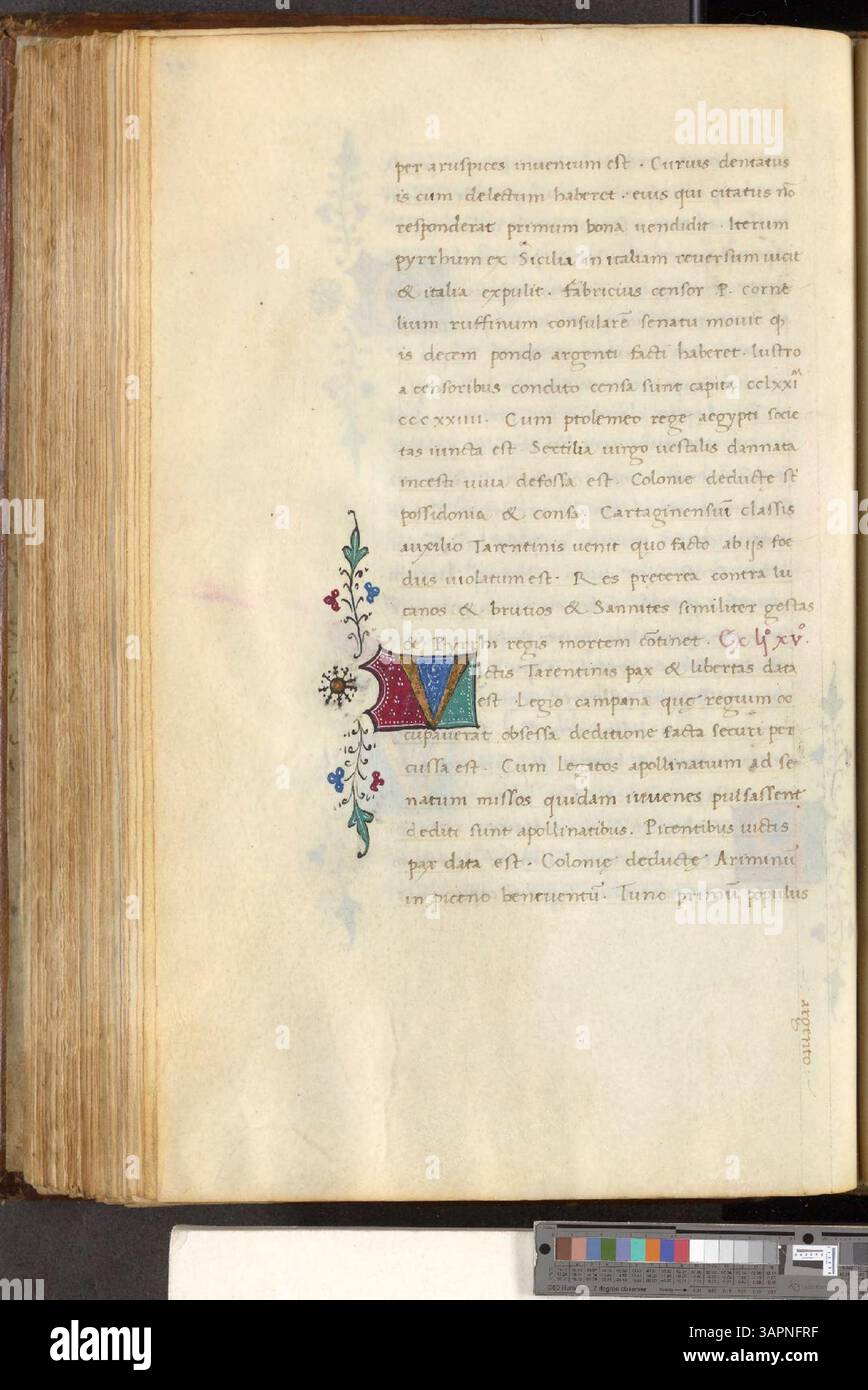 per aruspices inventum est . Curius dentatus
is cum delectum haberet . eius qui citatus nō
responderat primum bona vendidit . Iterum
pyrrhum ex Sicilia in italiam reversum vicit
& italia expulit . fabricius censor P. corne
lium ruffinum consularē senatu movit q
is decem pondo argenti facti haberet . lustro
a censoribus condito censa sunt capita cclxxi
cccxxiiii . Cum ptolemeo rege aegypti socie
tas iuncta est . Sextilia virgo vestalis dannata
incesti viva defossa est . Colonie deducte st̄
possidonia & consa . Cartaginensiū classis
auxilio Tarentinis venit quo facto ab iis foe
dus violatum est . Res preterea contra lu
canos & brutios & Sannites similiter gestas
& Pyrrhi regis mortem cōtinet . Ex lį xv
Victis Tarentinis pax & libertas data
est . Legio campana quę regium oc
cupaverat obsessa deditione facta securi per
cussa est . Cum legatos apollinatium ad se
natum missos quidam iuvenes pulsassent
dediti sunt apollinatibus . Picentibus victis
pax data est . Colonię deductę Ariminū
in piceno beneventū . Tunc primū populus
argento
alamy
Image ID: 3APNFRF
www.alamy.com